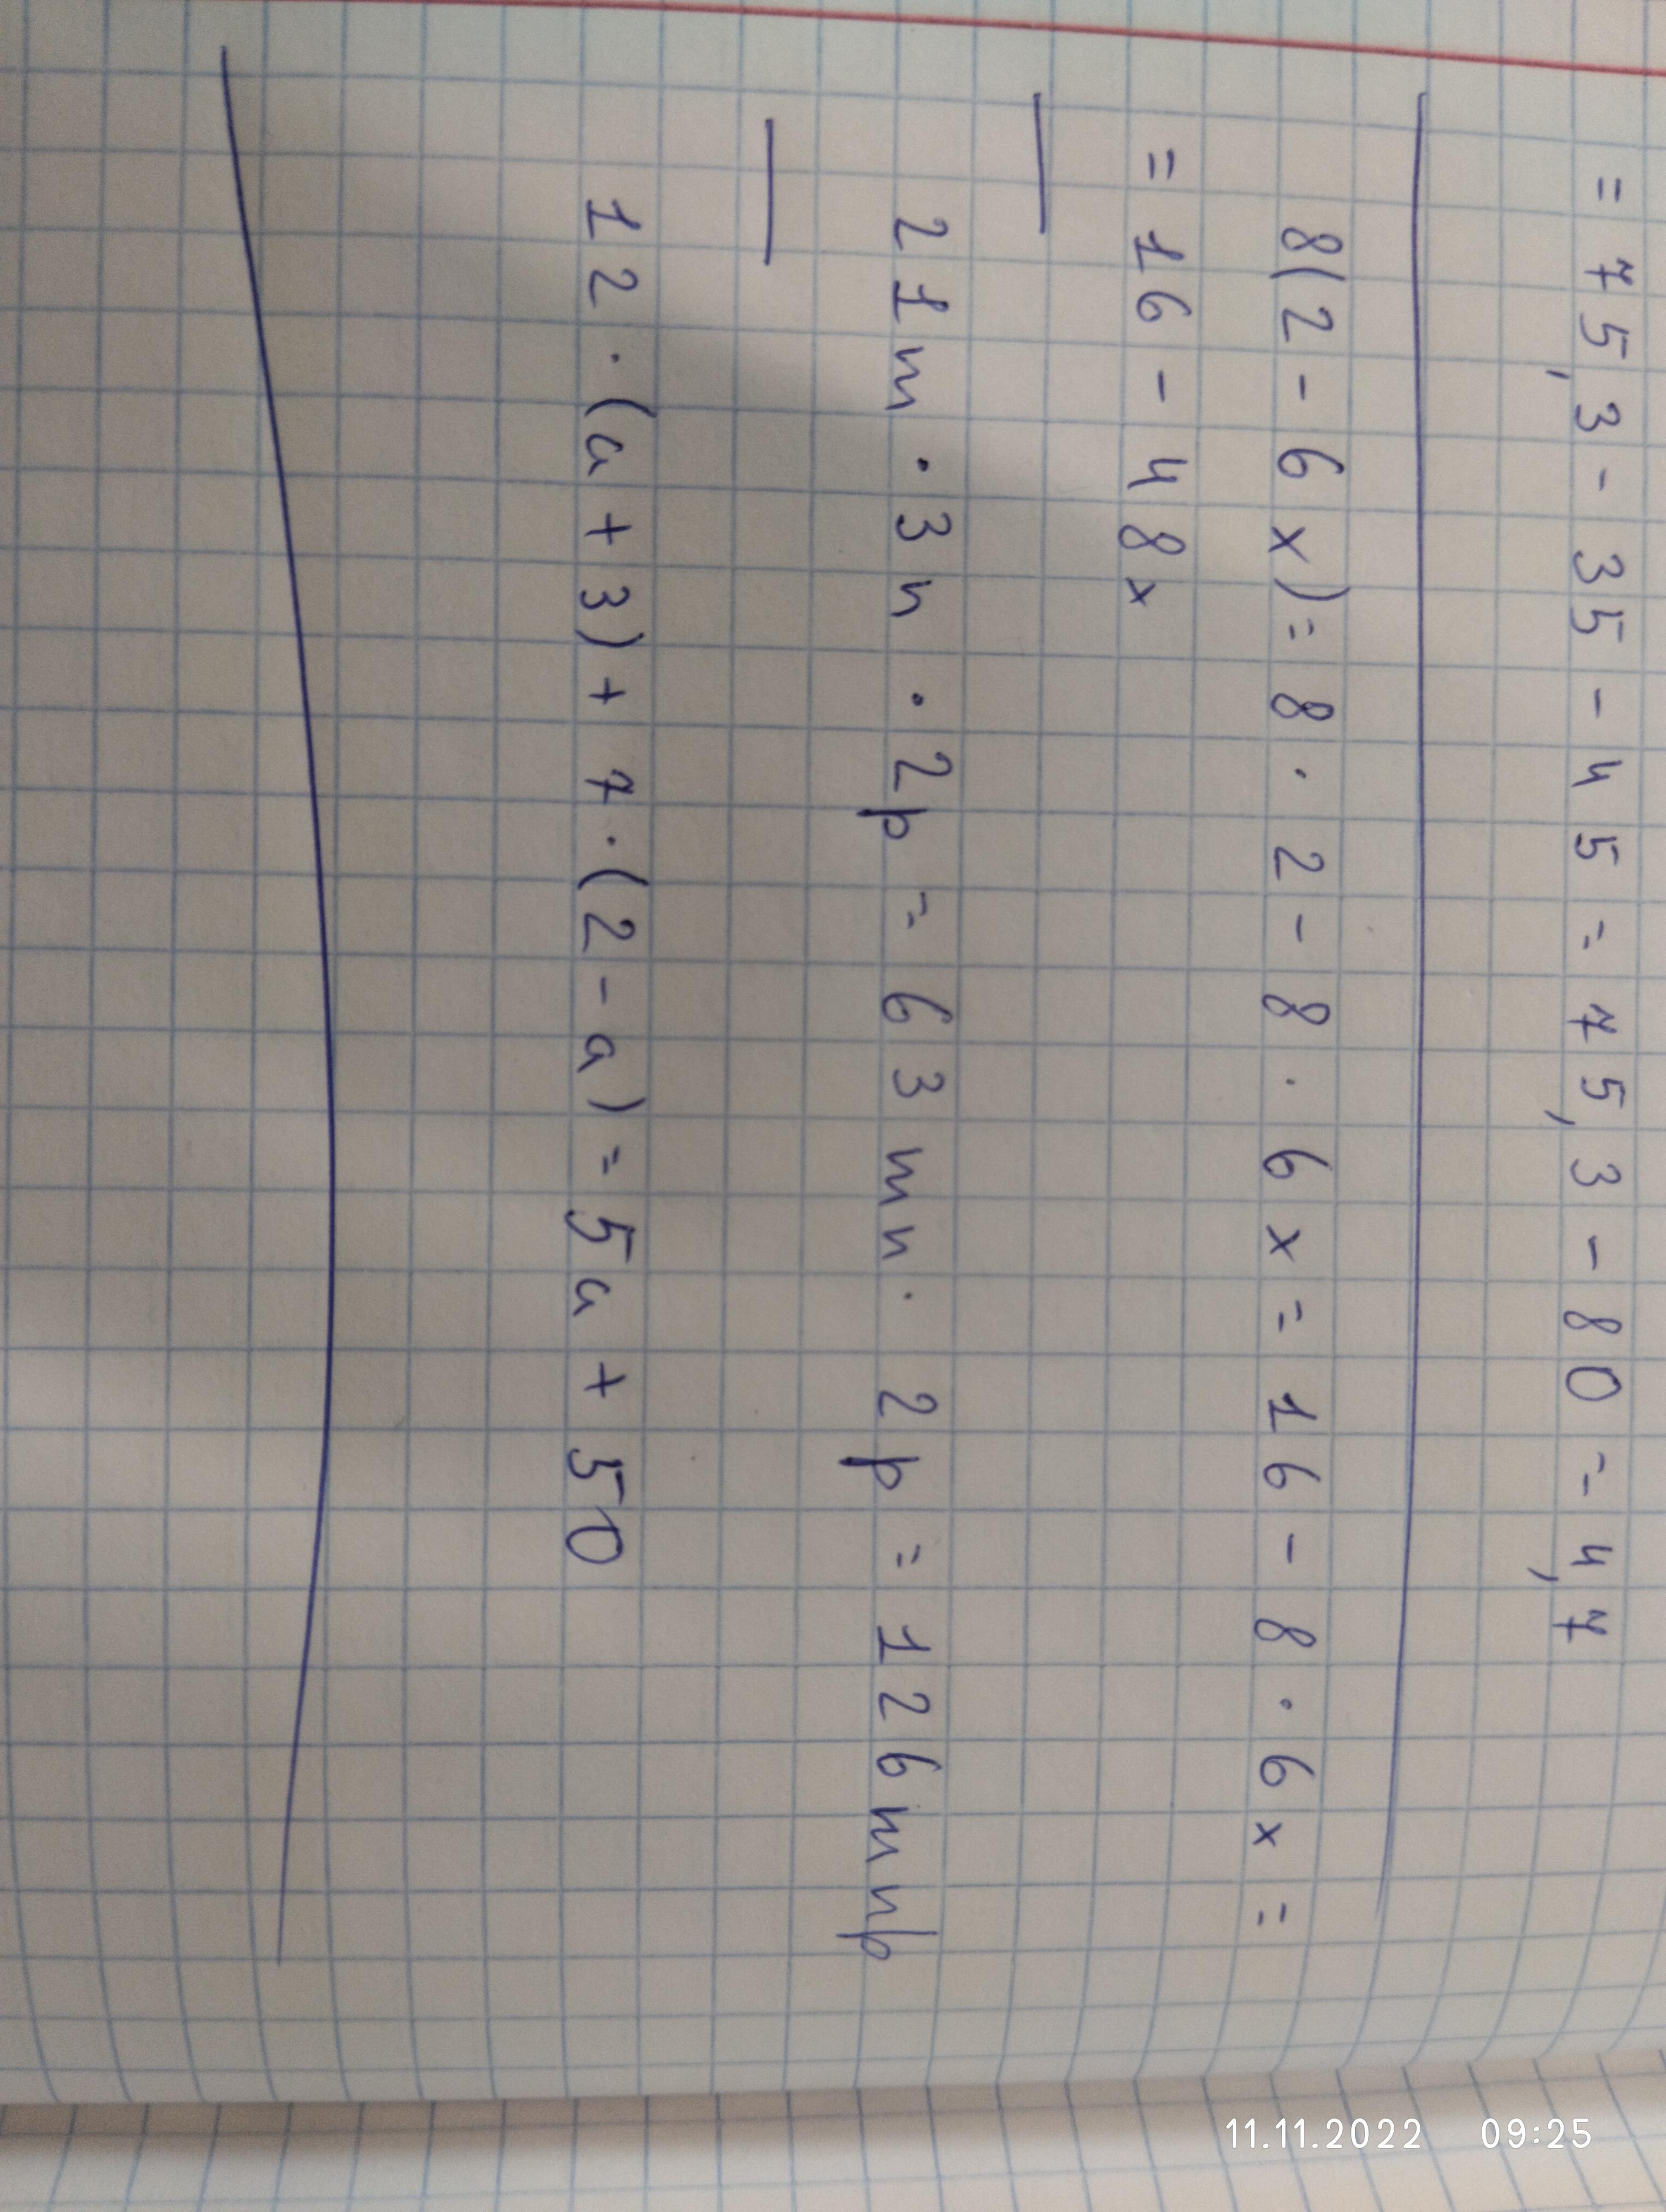 = 75,3 - 35 - 45 = 75,3 - 80 = 4,7
8(2 - 6x) = 8 · 2 - 8 · 6x = 16 - 8 · 6x =
= 16 - 48x
21m · 3n · 2p = 63mn · 2p = 126mnp
12 · (a + 3) + 7 · (2 - a) = 5a + 50
11.11.2022 09:25